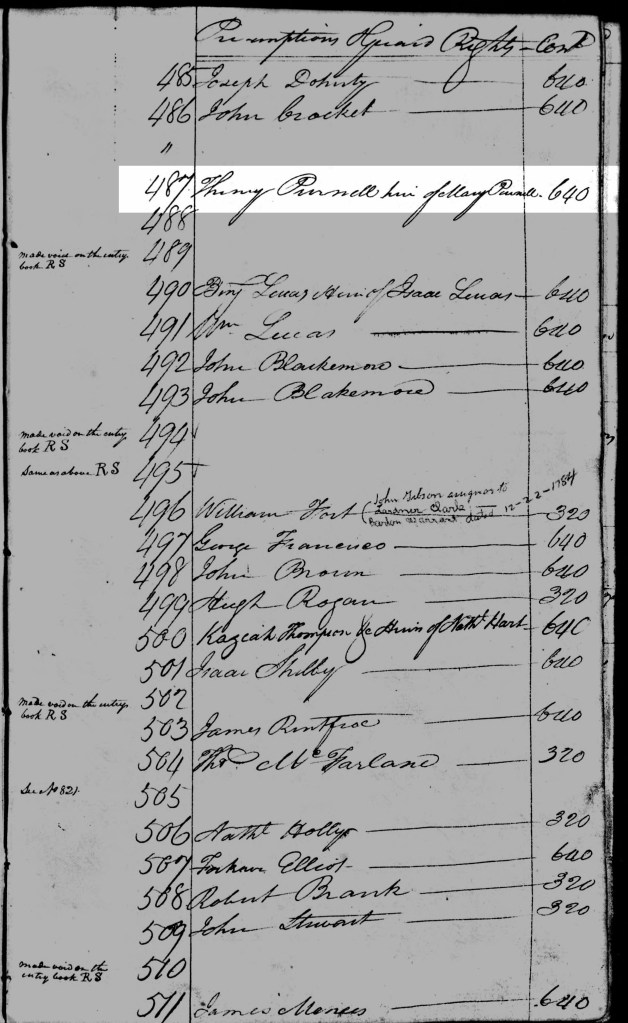 Pre-emptions & Guard Rights - Cont^d
485 Joseph Doherty 640
486 John Crocket 640
"
487 Henry Purnell heir of Mary Purnell. 640
488
made void on the entry
book R S
489
490 Benj Lucas Heir of Isaac Lucas 640
491 Wm Lucas 640
492 John Blackemore 640
493 John Blakemore 640
made void on the entry
book R S
494
Same as above R S
495
496 William Fort (John Gibson assignor to 320
Lardner Clark
warrant dated 12-22-1784
497 George Francisco 640
498 John Brown 640
499 Hugh Rogan 320
500 Kaziah Thompson &c Heirs of Nath^l Hart 640
501 Isaac Shilby 640
502
made void on the entry
book R S
503 James Rentfroe 640
504 Tho^s McFarland 320
See No 821
505
506 Nath^l Hollys 320
507 Elliot 640
508 Robert Brank 320
509 John Stuart 320
made void on the
entry book R S
510
511 James Menees 640